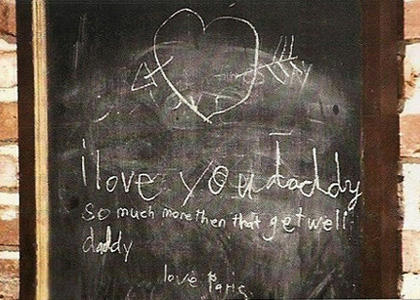 i love you daddy
So much more then that get well
daddy
love Paris